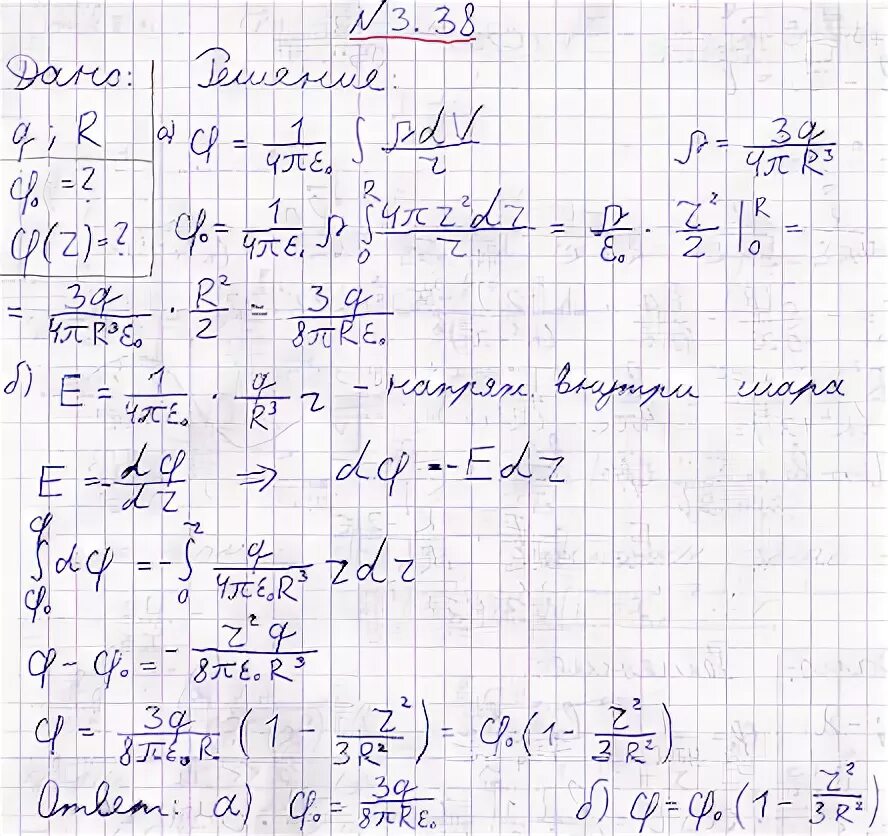 N 3.38
Дано: Решение:
q; R а) φ = 1/(4πε₀) ∫ ρdV/r ρ = 3q/(4πR³)
φ₀ = ?
φ(r) = ? φ₀ = 1/(4πε₀) ρ ∫₀ᴿ 4πr²dr/r = ρ/ε₀ · r²/2 |₀ᴿ =
= 3q/(4πR³ε₀) · R²/2 = 3q/(8πRε₀)
б) E = 1/(4πε₀) · q/R³ r – напряж. внутри шара
E = -dφ/dr ⇒ dφ = -Edr
∫_φ₀^φ dφ = -∫₀ʳ q/(4πε₀R³) rdr
φ - φ₀ = - r²q/(8πε₀R³)
φ = 3q/(8πε₀R) (1 - r²/(3R²)) = φ₀(1 - r²/(3R²))
Ответ: а) φ₀ = 3q/(8πRε₀) б) φ = φ₀(1 - r²/(3R²))